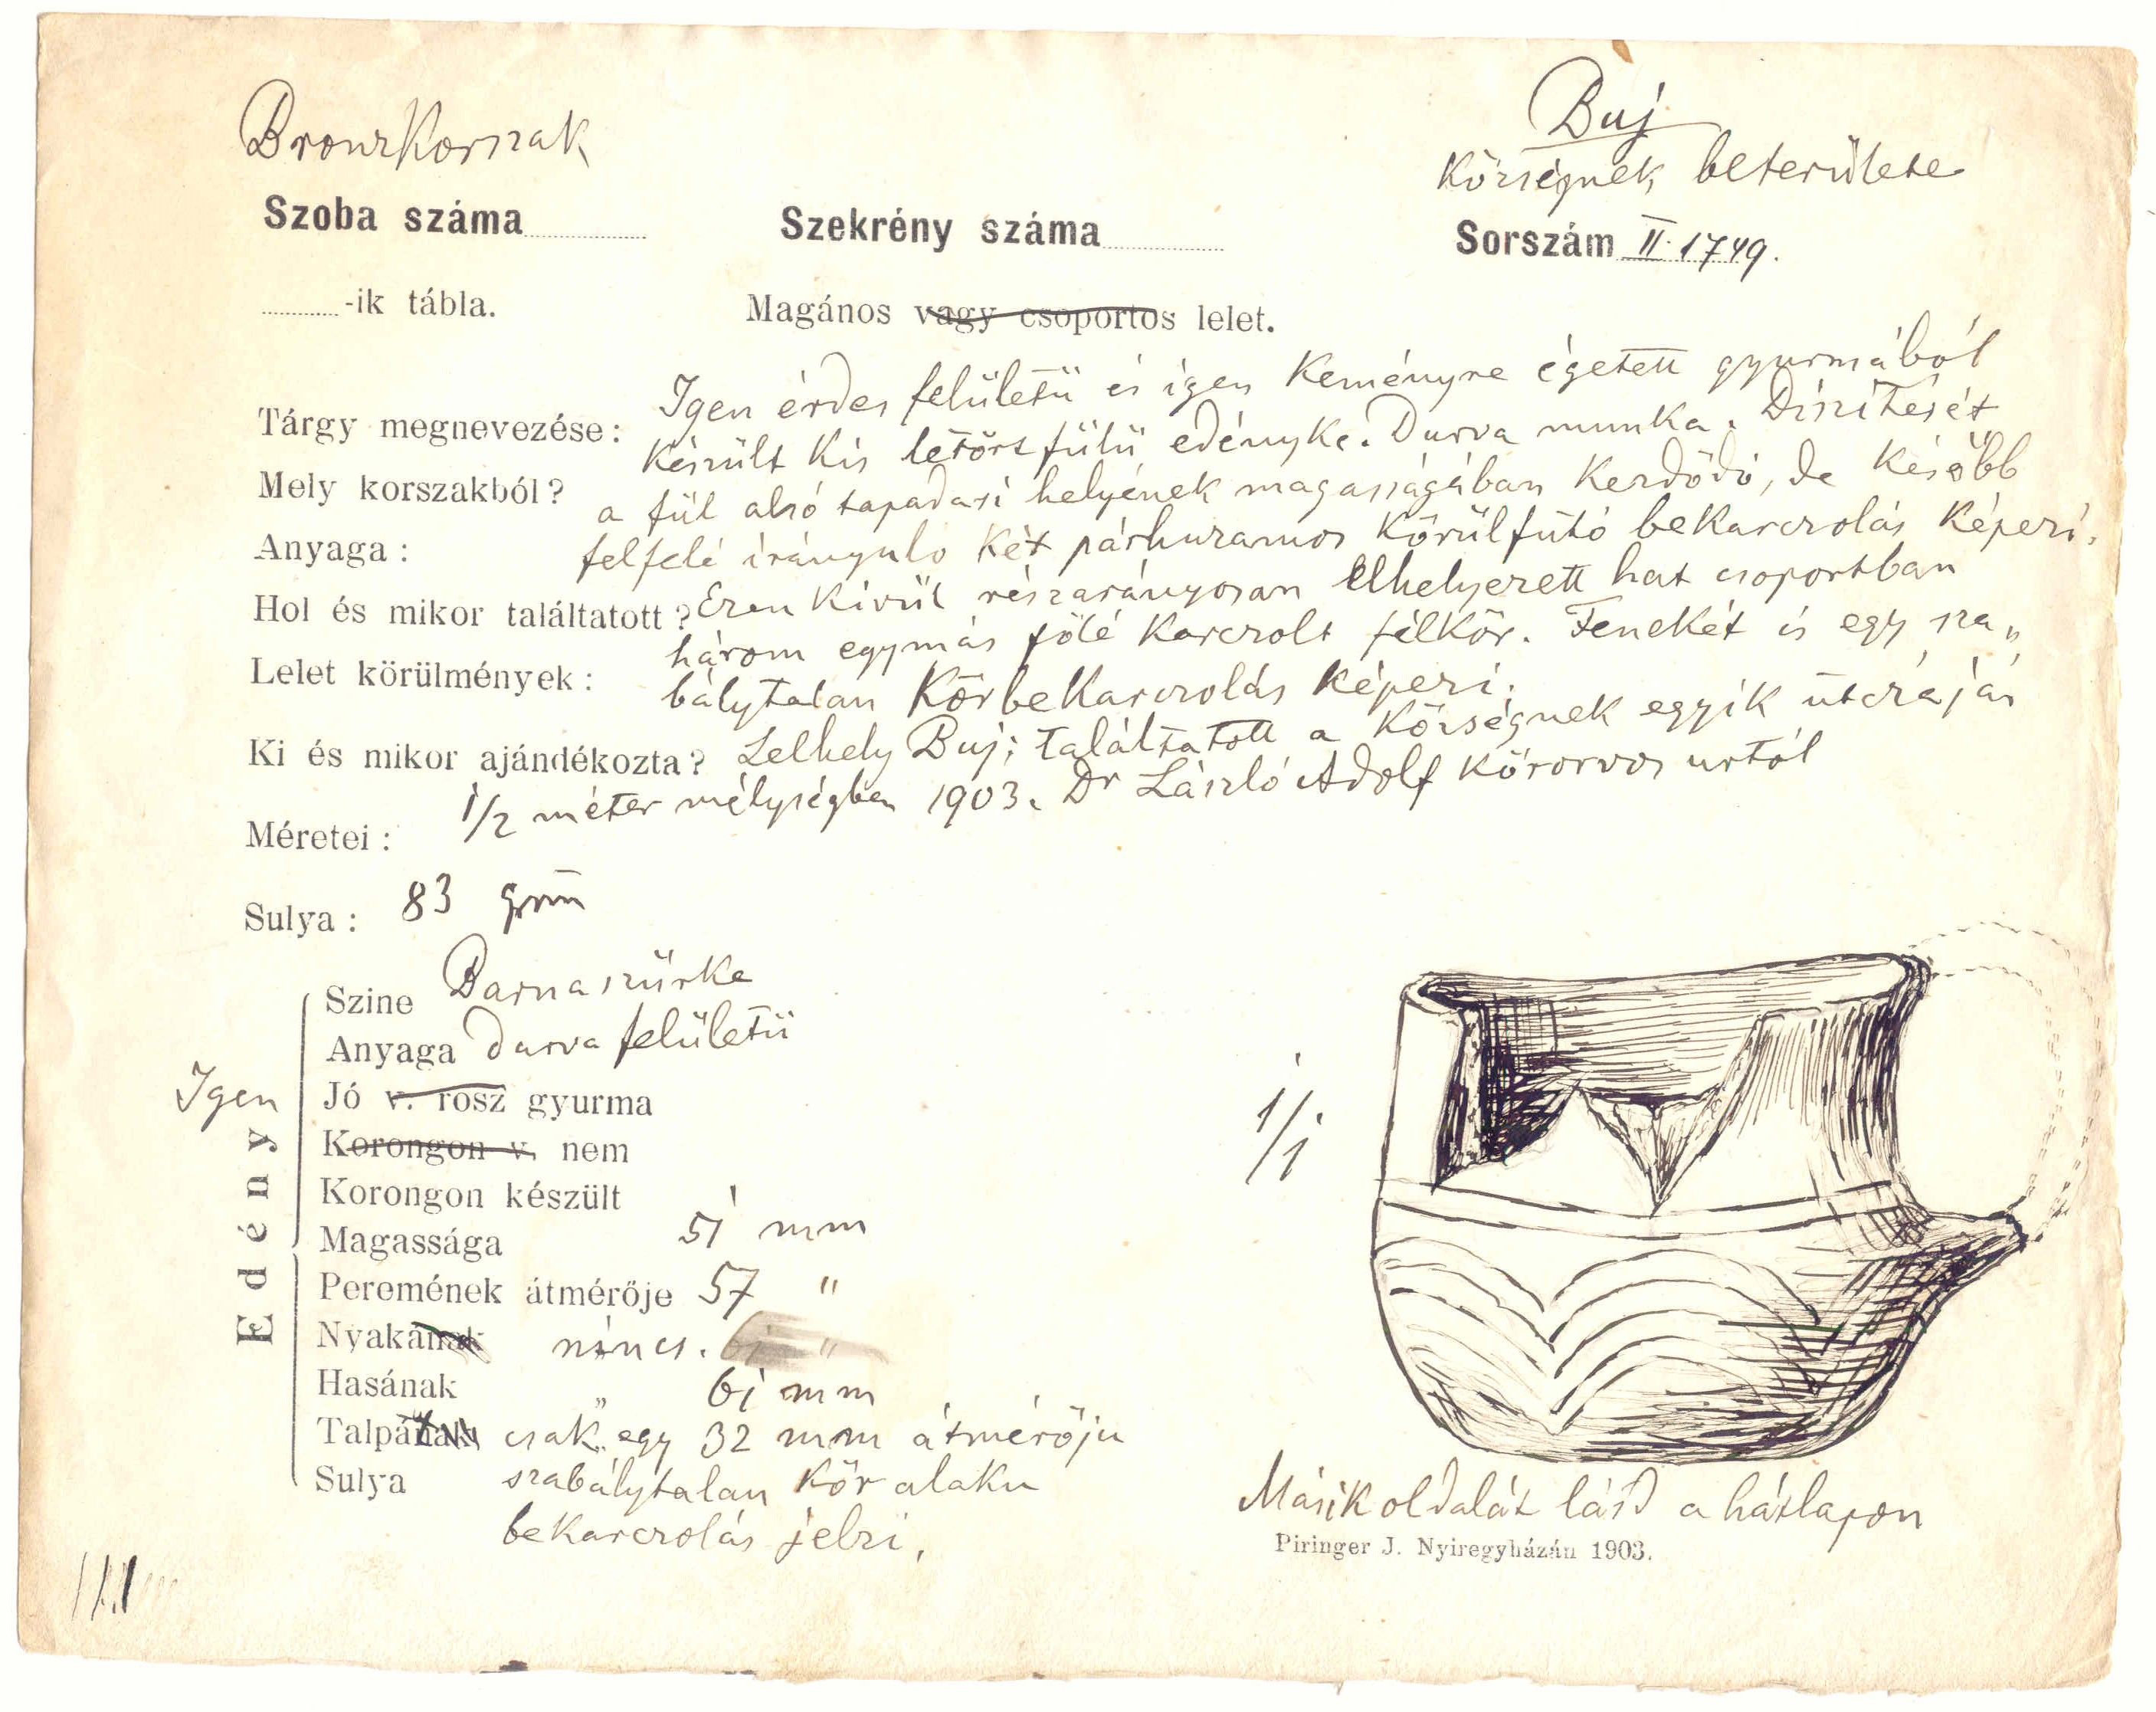 Bronzkorszak
Buj
Községnek belterülete
Szoba száma
Szekrény száma
Sorszám II. 1749.
-ik tábla.
Magános vagy csoportos lelet.
Tárgy megnevezése:
Mely korszakból?
Anyaga:
Hol és mikor találtatott?
Lelet körülmények:
Ki és mikor ajándékozta?
Méretei:
Igen érdes felületü és igen keményre égetett gyurmából
készült kis letört fülü edényke. Durva munka. Diszitését
a fül alsó tapadási helyének magasságában kezdődő, de később
felfelé irányuló két párhuzamos körülfutó bekarczolás képezi.
Ezen kivül részarányosan elhelyezett hat csoportban
három egymás fölé karczolt félkör. Fenekét is egy sza„
bálytalan körbekarczolás képezi.
Lelhely Buj; találtatott a községnek egyik utczáján
1/2 méter mélységben 1903. Dr László Adolf körorvos urtól
Sulya: 83 grm
Edény
Igen
Szine Barnaszürke
Anyaga durva felületü
Jó v. rosz gyurma
Korongon v. nem
Korongon készült
Magassága 51 mm
Peremének átmérője 57 "
Nyakának nincs.
Hasának " 61 mm
Talpának csak egy 32 mm átmérőju
Sulya szabálytalan kör alaku
bekarczolás jelzi.
1/1
Másik oldalát lásd a hátlapon
Piringer J. Nyiregyházán 1903.